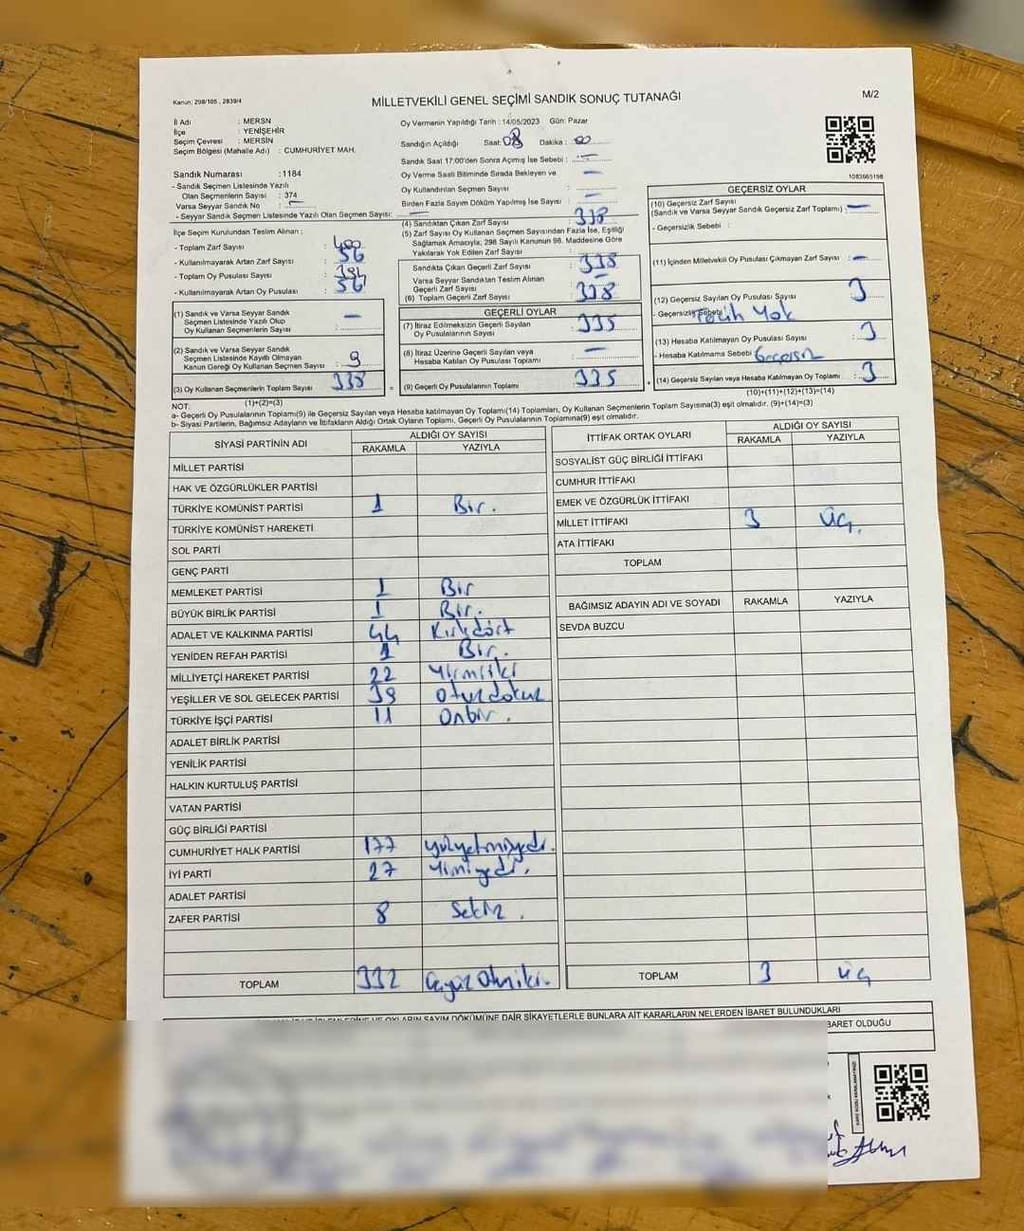 Kanun: 298/105 , 2839/4
MİLLETVEKİLİ GENEL SEÇİMİ SANDIK SONUÇ TUTANAĞI
M/2
İl Adı : MERSN
İlçe : YENİŞEHİR
Seçim Çevresi : MERSİN
Seçim Bölgesi (Mahalle Adı) : CUMHURİYET MAH.
Sandık Numarası :1184
- Sandık Seçmen Listesinde Yazılı
Olan Seçmenlerin Sayısı : 374
Varsa Seyyar Sandık No : —
- Seyyar Sandık Seçmen Listesinde Yazılı Olan Seçmen Sayısı: —
Oy Vermenin Yapıldığı Tarih : 14/05/2023 Gün: Pazar
Sandığın Açıldığı Saat: 08 Dakika : 00
Sandık Saat 17:00'den Sonra Açılmış İse Sebebi : —
Oy Verme Saati Bitiminde Sırada Bekleyen ve —
Oy Kullandırılan Seçmen Sayısı
Birden Fazla Sayım Döküm Yapılmış İse Sayısı : —
1083665198
İlçe Seçim Kurulundan Teslim Alınan :
- Toplam Zarf Sayısı : 400
- Kullanılmayarak Artan Zarf Sayısı : 56
- Toplam Oy Pusulası Sayısı : 394
- Kullanılmayarak Artan Oy Pusulası : 56
(1) Sandık ve Varsa Seyyar Sandık
Seçmen Listesinde Yazılı Olup
Oy Kullanan Seçmenlerin Sayısı —
(2) Sandık ve Varsa Seyyar Sandık
Seçmen Listesinde Kayıtlı Olmayan
Kanun Gereği Oy Kullanan Seçmen Sayısı : 9
(3) Oy Kullanan Seçmenlerin Toplam Sayısı 338
(1)+(2)=(3)
(4) Sandıktan Çıkan Zarf Sayısı 338
(5) Zarf Sayısı Oy Kullanan Seçmen Sayısından Fazla İse, Eşitliği
Sağlamak Amacıyla; 298 Sayılı Kanunun 98. Maddesine Göre
Yakılarak Yok Edilen Zarf Sayısı : —
Sandıkta Çıkan Geçerli Zarf Sayısı : 338
Varsa Seyyar Sandıktan Teslim Alınan
Geçerli Zarf Sayısı : —
(6) Toplam Geçerli Zarf Sayısı : 338
GEÇERLİ OYLAR
(7) İtiraz Edilmeksizin Geçerli Sayılan
Oy Pusulalarının Sayısı : 335
(8) İtiraz Üzerine Geçerli Sayılan veya
Hesaba Katılan Oy Pusulası Toplamı : —
= (9) Geçerli Oy Pusulalarının Toplamı 335
GEÇERSİZ OYLAR
(10) Geçersiz Zarf Sayısı
(Sandık ve Varsa Seyyar Sandık Geçersiz Zarf Toplamı) : —
- Geçersizlik Sebebi :
(11) İçinden Milletvekili Oy Pusulası Çıkmayan Zarf Sayısı : —
(12) Geçersiz Sayılan Oy Pusulası Sayısı 3
- Geçersizlik Sebebi : Tercih Yok
(13) Hesaba Katılmayan Oy Pusulası Sayısı : 3
- Hesaba Katılmama Sebebi : Geçersiz
+ (14) Geçersiz Sayılan veya Hesaba Katılmayan Oy Toplamı : 3
(10)+(11)+(12)+(13)=(14)
NOT:
a- Geçerli Oy Pusulaları Toplamı(9) ile Geçersiz Sayılan veya Hesaba katılmayan Oy Toplamı(14) Toplamları, Oy Kullanan Seçmenlerin Toplam Sayısına(3) eşit olmalıdır. (9)+(14)=(3)
b- Siyasi Partilerin, Bağımsız Adayların ve İttifakların Aldığı Ortak Oyların Toplamı, Geçerli Oy Pusulalarının Toplamına(9) eşit olmalıdır.
SİYASİ PARTİNİN ADI ALDIĞI OY SAYISI
RAKAMLA YAZIYLA
MİLLET PARTİSİ
HAK VE ÖZGÜRLÜKLER PARTİSİ
TÜRKİYE KOMÜNİST PARTİSİ 1 Bir.
TÜRKİYE KOMÜNİST HAREKETİ
SOL PARTİ
GENÇ PARTİ
MEMLEKET PARTİSİ 1 Bir
BÜYÜK BİRLİK PARTİSİ 1 Bir.
ADALET VE KALKINMA PARTİSİ 44 Kırkdört
YENİDEN REFAH PARTİSİ 1 Bir.
MİLLİYETÇİ HAREKET PARTİSİ 22 Yirmiiki
YEŞİLLER VE SOL GELECEK PARTİSİ 39 otuzdokuz
TÜRKİYE İŞÇİ PARTİSİ 11 Onbir.
ADALET BİRLİK PARTİSİ
YENİLİK PARTİSİ
HALKIN KURTULUŞ PARTİSİ
VATAN PARTİSİ
GÜÇ BİRLİĞİ PARTİSİ
CUMHURİYET HALK PARTİSİ 177 yüzyetmişyedi.
İYİ PARTİ 27 Yirmiyedi.
ADALET PARTİSİ
ZAFER PARTİSİ 8 Sekiz.
TOPLAM 332 Üçyüz Otuziki.
İTTİFAK ORTAK OYLARI ALDIĞI OY SAYISI
RAKAMLA YAZIYLA
SOSYALİST GÜÇ BİRLİĞİ İTTİFAKI
CUMHUR İTTİFAKI
EMEK VE ÖZGÜRLÜK İTTİFAKI
MİLLET İTTİFAKI 3 Üç.
ATA İTTİFAKI
TOPLAM
BAĞIMSIZ ADAYIN ADI VE SOYADI RAKAMLA YAZIYLA
SEVDA BUZCU
TOPLAM 3 üç
OYLARIN SAYIM DÖKÜMÜNE DAİR ŞİKAYETLERLE BUNLARA AİT KARARLARIN NELERDEN İBARET BULUNDUKLARI
BARET OLDUĞU